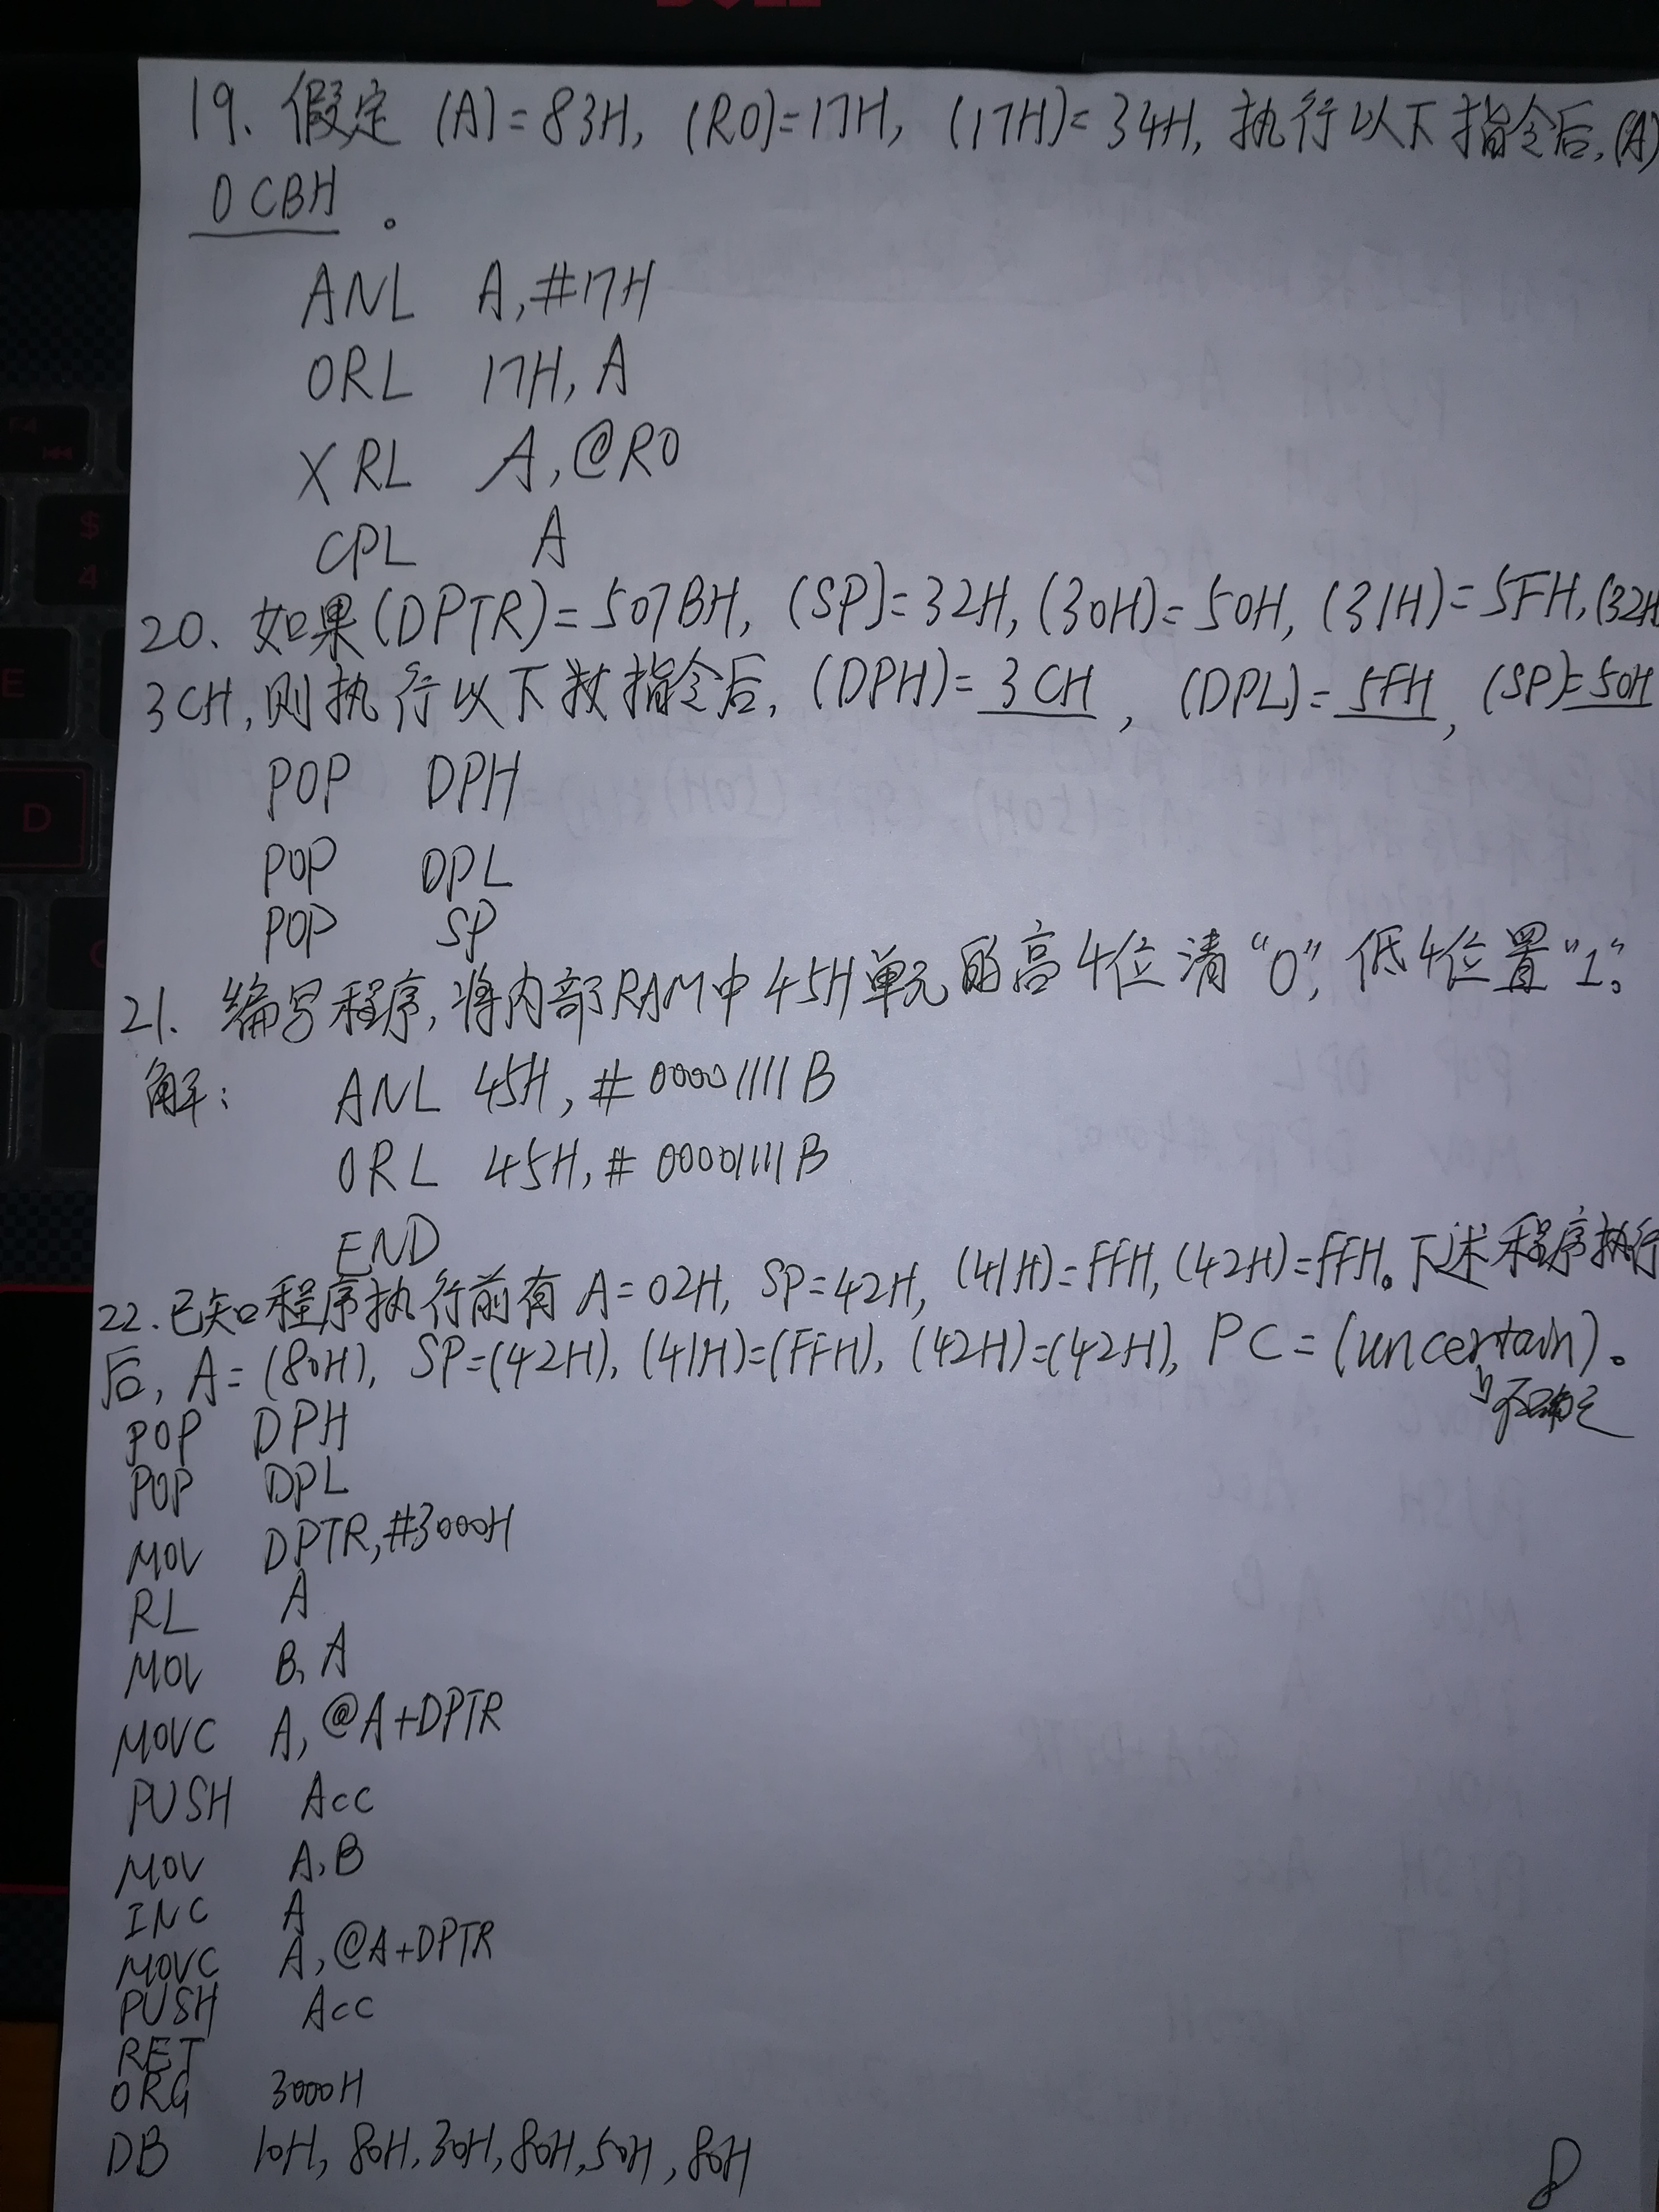 19. 假定 (A)=83H, (R0)=17H, (17H)=34H, 执行以下指令后, (A)
0CBH 。
ANL A, #17H
ORL 17H, A
XRL A, @R0
CPL A
20. 如果(DPTR)=507BH, (SP)=32H, (30H)=50H, (31H)=5FH, (32H
3CH, 则执行以下指令后, (DPH)=3CH, (DPL)=5FH, (SP)=50H
POP DPH
POP DPL
POP SP
21. 编写程序, 将内部RAM中45H单元的高4位清“0”, 低4位置“1”。
解: ANL 45H, #00001111B
ORL 45H, #00001111B
END
22. 已知程序执行前有 A=02H, SP=42H, (41H)=FFH, (42H)=FFH。下述程序执行
后, A=(80H), SP=(42H), (41H)=(FFH), (42H)=(42H), PC=(uncertain)。
不确定
POP DPH
POP DPL
MOV DPTR, #3000H
RL A
MOV B, A
MOVC A, @A+DPTR
PUSH Acc
MOV A, B
INC A
MOVC A, @A+DPTR
PUSH Acc
RET
ORG 3000H
DB 10H, 80H, 30H, 80H, 50H, 80H
8